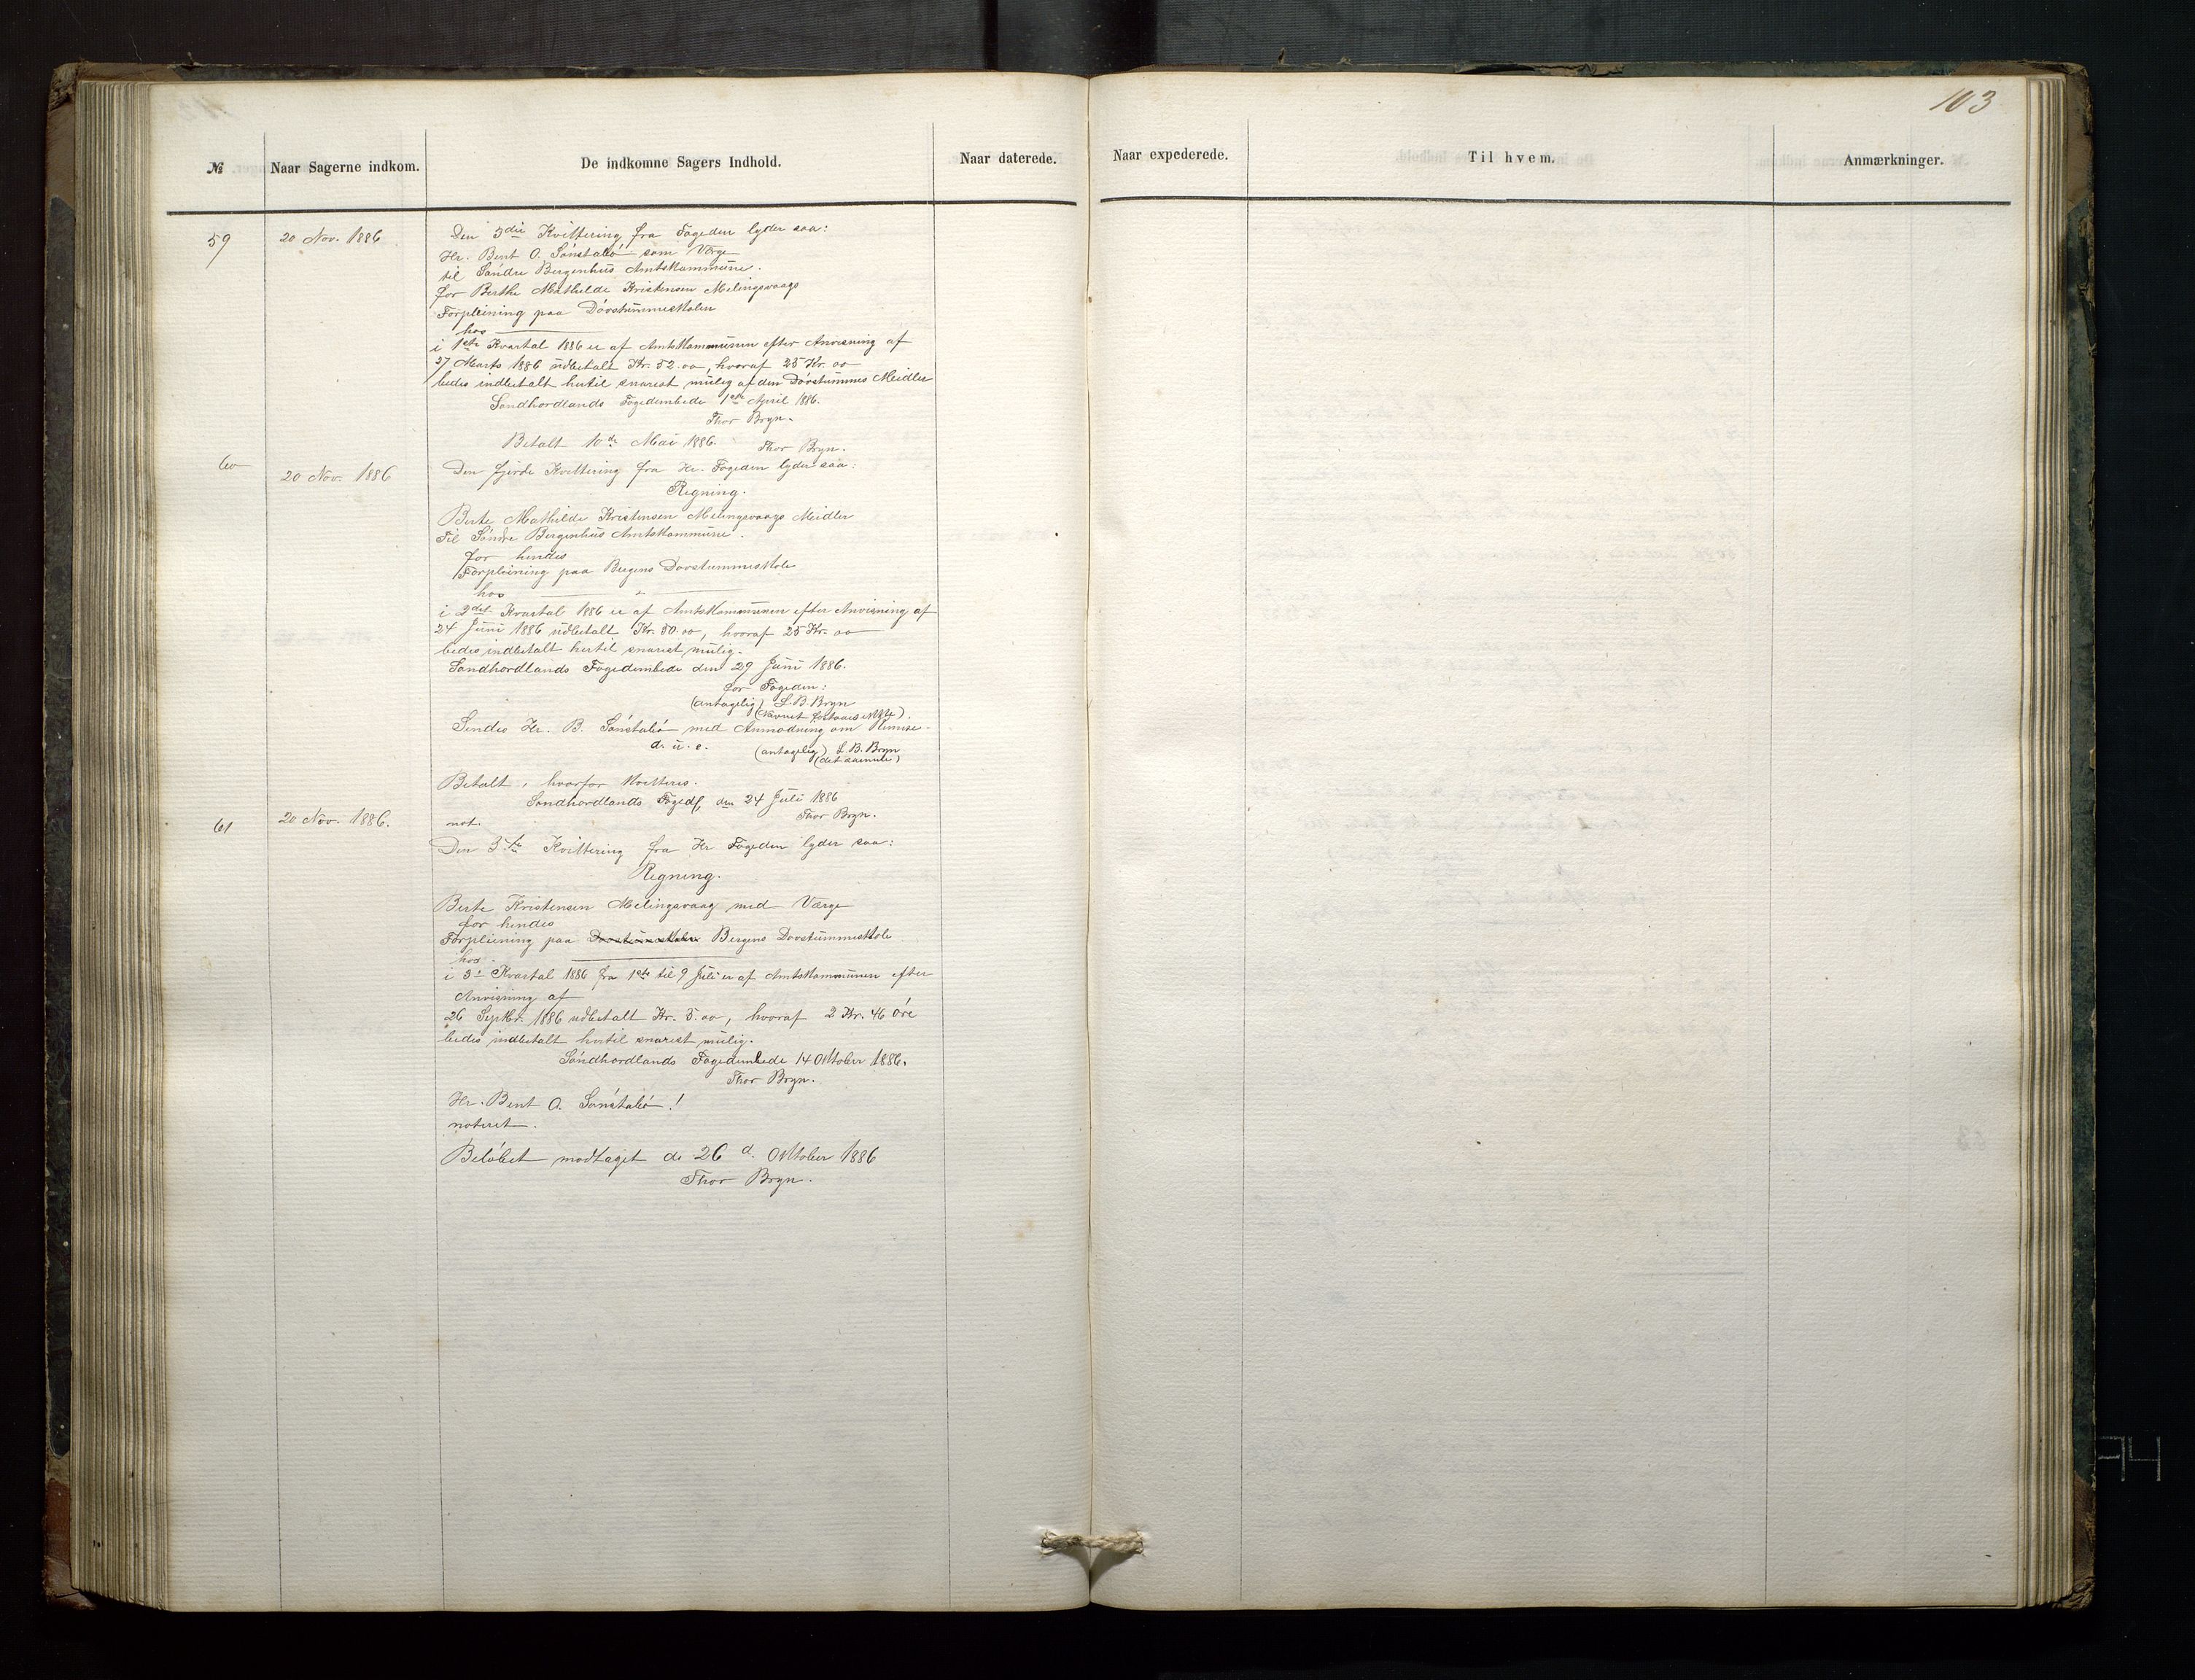 103
№ Naar Sagerne indkom. De indkomne Sagers Indhold. Naar daterede. Naar expederede. Til hvem. Anmærkninger.
59 20 Nov. 1886 Den 3die Kvittering fra Fogeden lyder saa:
Hr. Bent O. Sönstabö som Værge
til Söndre Bergenhus Amtskommune.
for Berthe Mathilde Kristensen Melingsvaags
Forpleining paa Dövstummeskolen
hos
i 1ste Kvartal 1886 er af Amtskommunen efter Anvisning af
27 Marts 1886 udbetalt Kr. 52.00, hvoraf 25 Kr. 00
bedes indbetalt hertil snarest mulig af den Dövstummes Meidler
Söndhordlands Fogedembede 1ste April 1886.
Thor Bryn.
Betalt 10de Mai 1886. Thor Bryn.
60 20 Nov. 1886 Den fjerde Kvittering fra Hr. Fogeden lyder saa:
Regning.
Berte Mathilde Kristensen Melingsvaags Meidler
Til Söndre Bergenhus Amtskommune.
for hendes
Forpleining paa Bergens Dovstummeskole
hos
i 2det Kvartal 1886 er af Amtskommunen efter Anvisning af
24 Juni 1886 udbetalt Kr. 50.00, hvoraf 25 Kr. 00
bedes indbetalt hertil snarest mulig.
Söndhordlands Fogedembede den 29 Juni 1886.
for Fogeden:
(antagelig) L. B. Bryn
(Navnet forstaaes ikke).
Sendes Hr. B. Sönstabö med Anmodning om
d. u. s. (antagelig) L. B. Bryn
(det samme)
Betalt, hvorfor kvitteres.
Söndhordlands Fogedf. den 24 Juli 1886
61 20 Nov. 1886. not. Thor Bryn.
Den 5te Kvittering fra Hr Fogeden lyder saa:
Regning.
Berte Kristensen Melingsvaag med Værge
for hendes
Forpleining paa Dovstummeskolen Bergens Dovstummeskole
hos
i 3die Kvartal 1886 fra 1ste til 9 Juli er af Amtskommunen efter
Anvisning af
26 Septbr. 1886 udbetalt Kr. 5.00, hvoraf 2 Kr. 46 Öre
bedes indbetalt hertil snarest mulig.
Söndhordlands Fogedembede 14 Oktober 1886.
Thor Bryn.
Hr. Bent O. Sönstabö!
noteret.
Belöbet modtaget de 26 d. Oktober 1886
Thor Bryn.